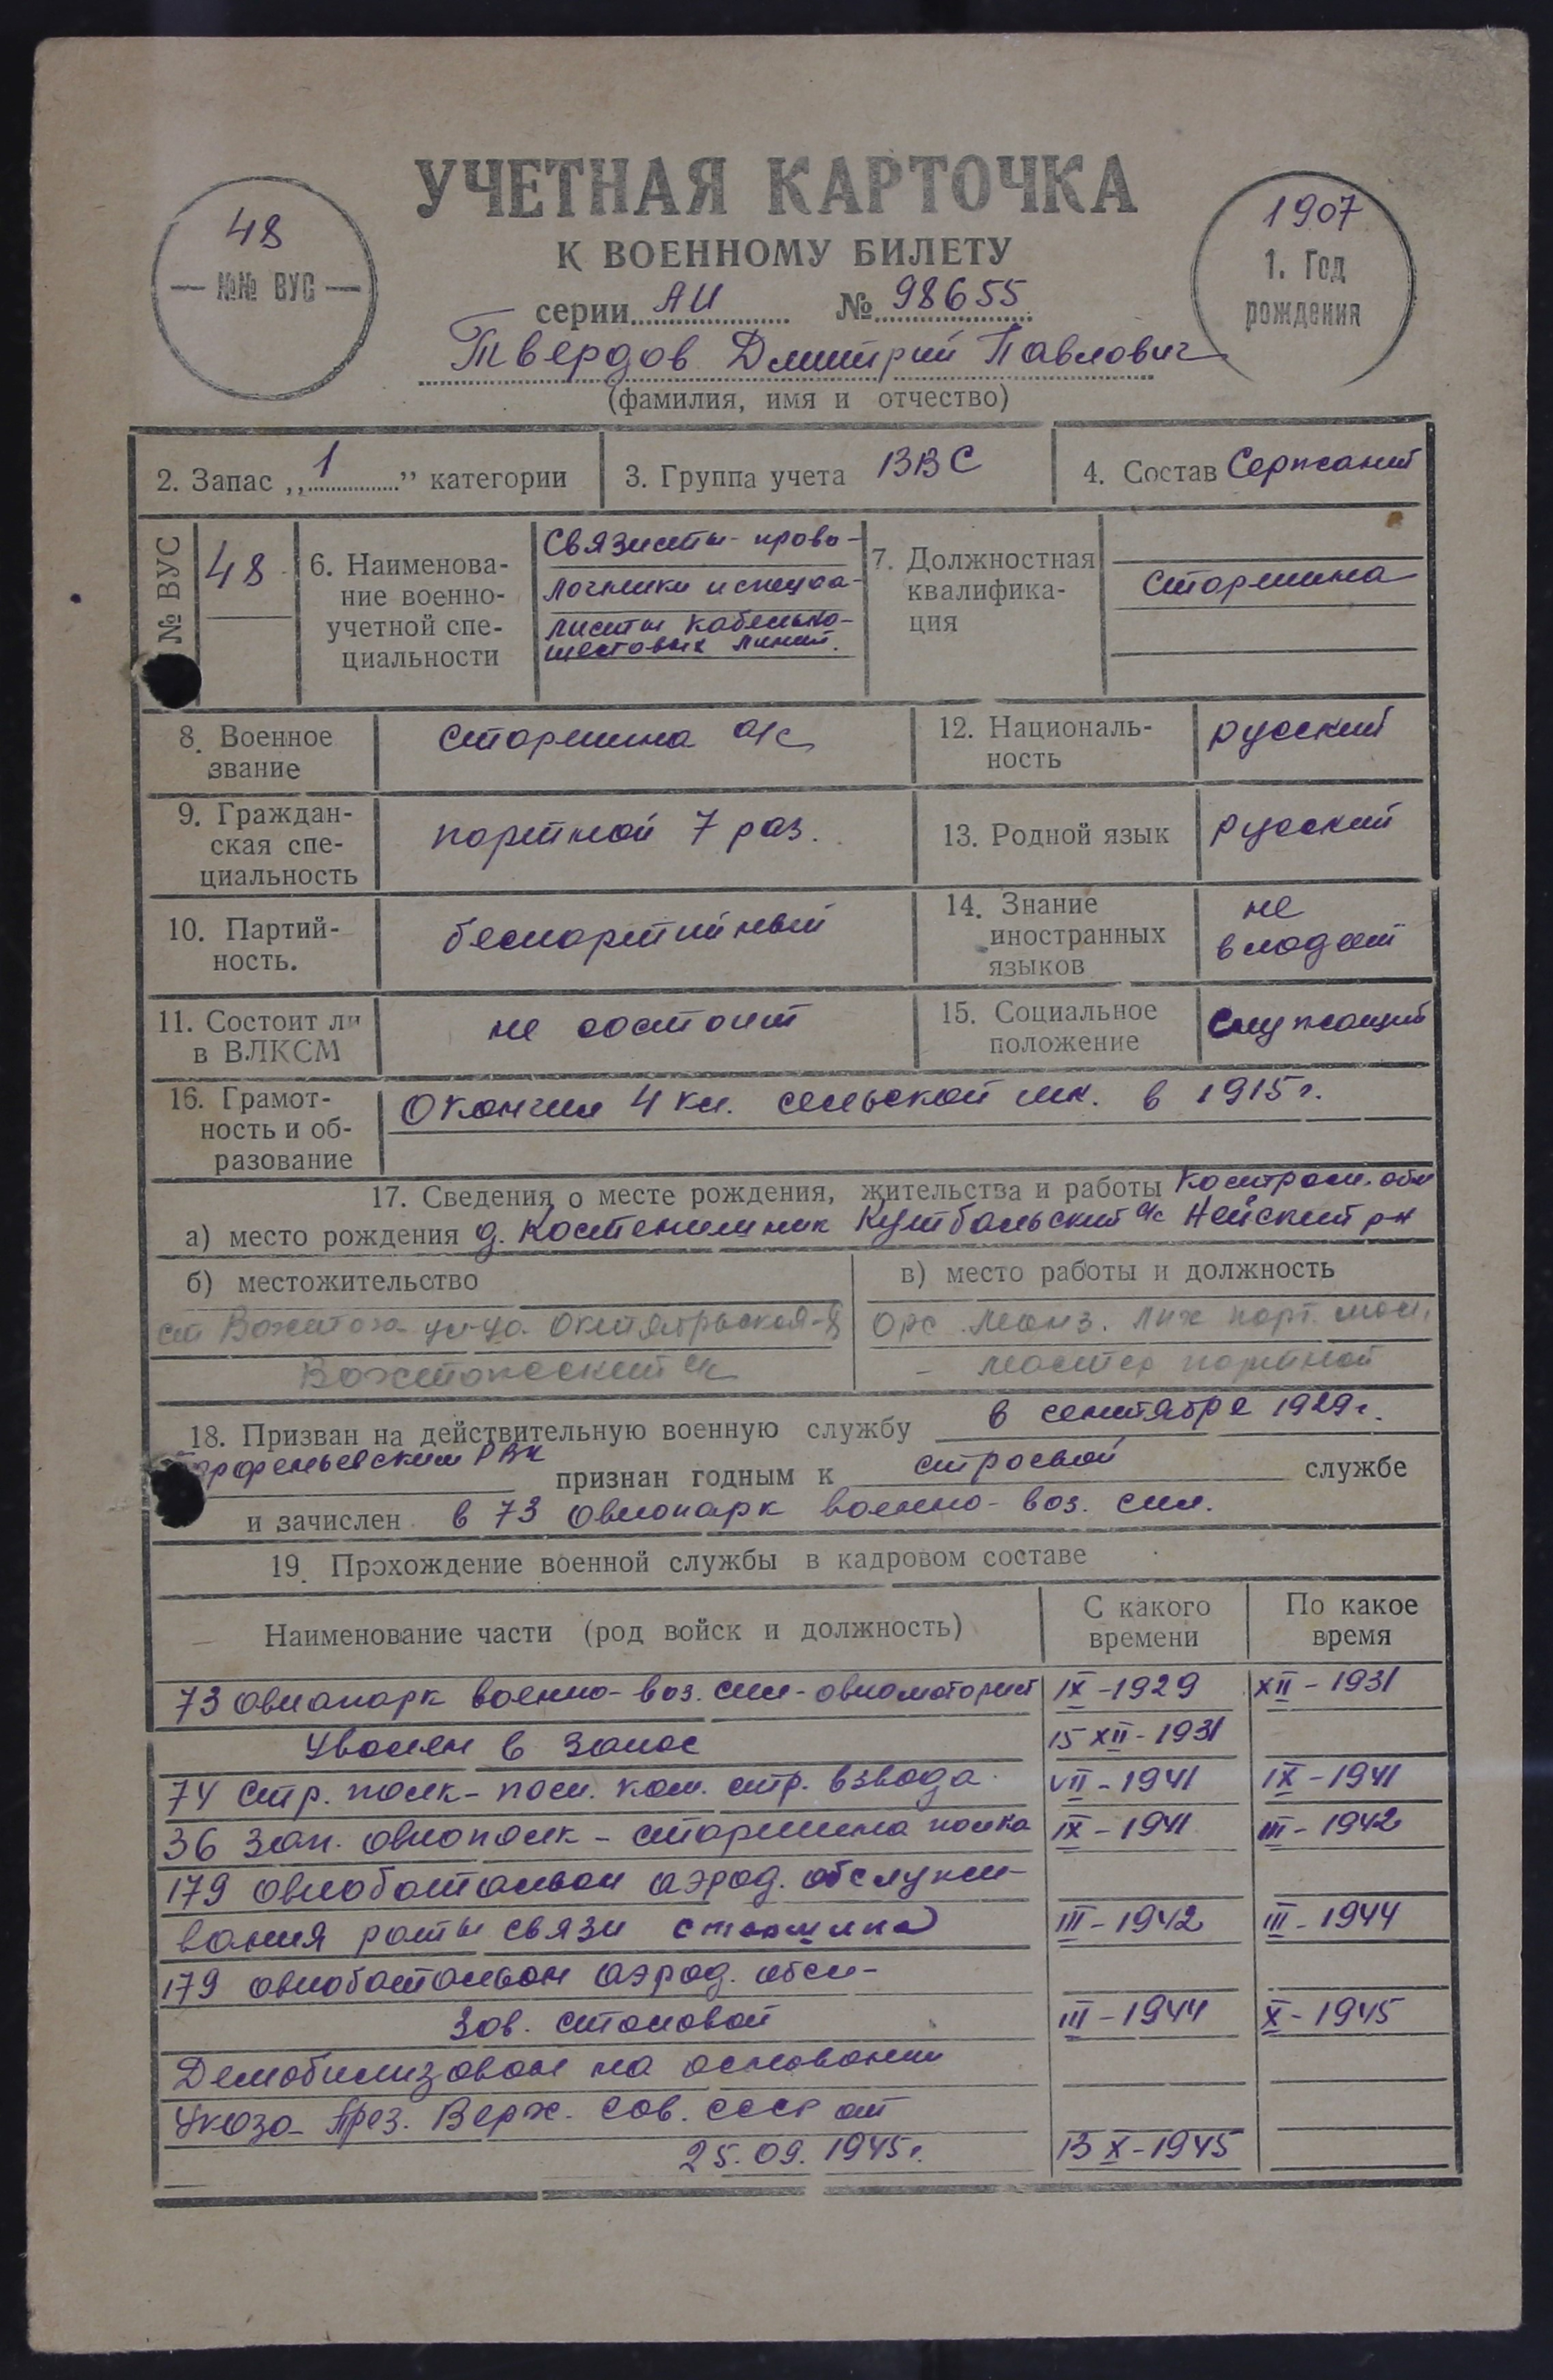 УЧЕТНАЯ КАРТОЧКА
К ВОЕННОМУ БИЛЕТУ
серии АИ № 98655
48
№№ ВУС
1907
1. Год
рождения
Твердов Дмитрий Павлович
(фамилия, имя и отчество)
2. Запас „1” категории
3. Группа учета ВВС
4. Состав Сержант
№ ВУС
48
6. Наименова-
ние военно-
учетной спе-
циальности
Связисты-прово-
лочники и специа-
листы кабельно-
шестовых линий.
7. Должностная
квалифика-
ция
старшина
8. Военное
звание
старшина а/с
12. Националь-
ность
русский
9. Граждан-
ская спе-
циальность
портной 7 раз.
13. Родной язык
русский
10. Партий-
ность.
беспартийный
14. Знание
иностранных
языков
не
владеет
11. Состоит ли
в ВЛКСМ
не состоит
15. Социальное
положение
служащий
16. Грамот-
ность и об-
разование
Окончил 4 кл. сельской шк. в 1915 г.
17. Сведения о месте рождения, жительства и работы Костром. обл
а) место рождения д. Кутбальский с/с Нейский р-н
б) местожительство
ст Вохтога ул-ца Октябрьская-
с/с
в) место работы и должность
Орс порт. мас.
- мастер портной
18. Призван на действительную военную службу в сентябре 1929 г.
РВК признан годным к строевой службе
и зачислен в 73 авиопарк военно-воз. сил.
19. Прохождение военной службы в кадровом составе
Наименование части (род войск и должность)
С какого
времени
По какое
время
73 авиапарк военно-воз. сил-авиамоторист IX-1929 XII-1931
Уволен в запас 15 XII-1931
74 стр. полк- пом. ком. стр. взвода. VII-1941 IX-1941
36 зап. авиополк - старшина полка IX-1941 III-1942
179 авиобатальон аэрод. обслужи-
вания роты связи старшина III-1942 III-1944
179 авиобатальон аэрод. обсл-
Зав. столовой III-1944 X-1945
Демобилизован на основании
Указа През. Верх. Сов. СССР от
25.09.1945 г. 13 X-1945